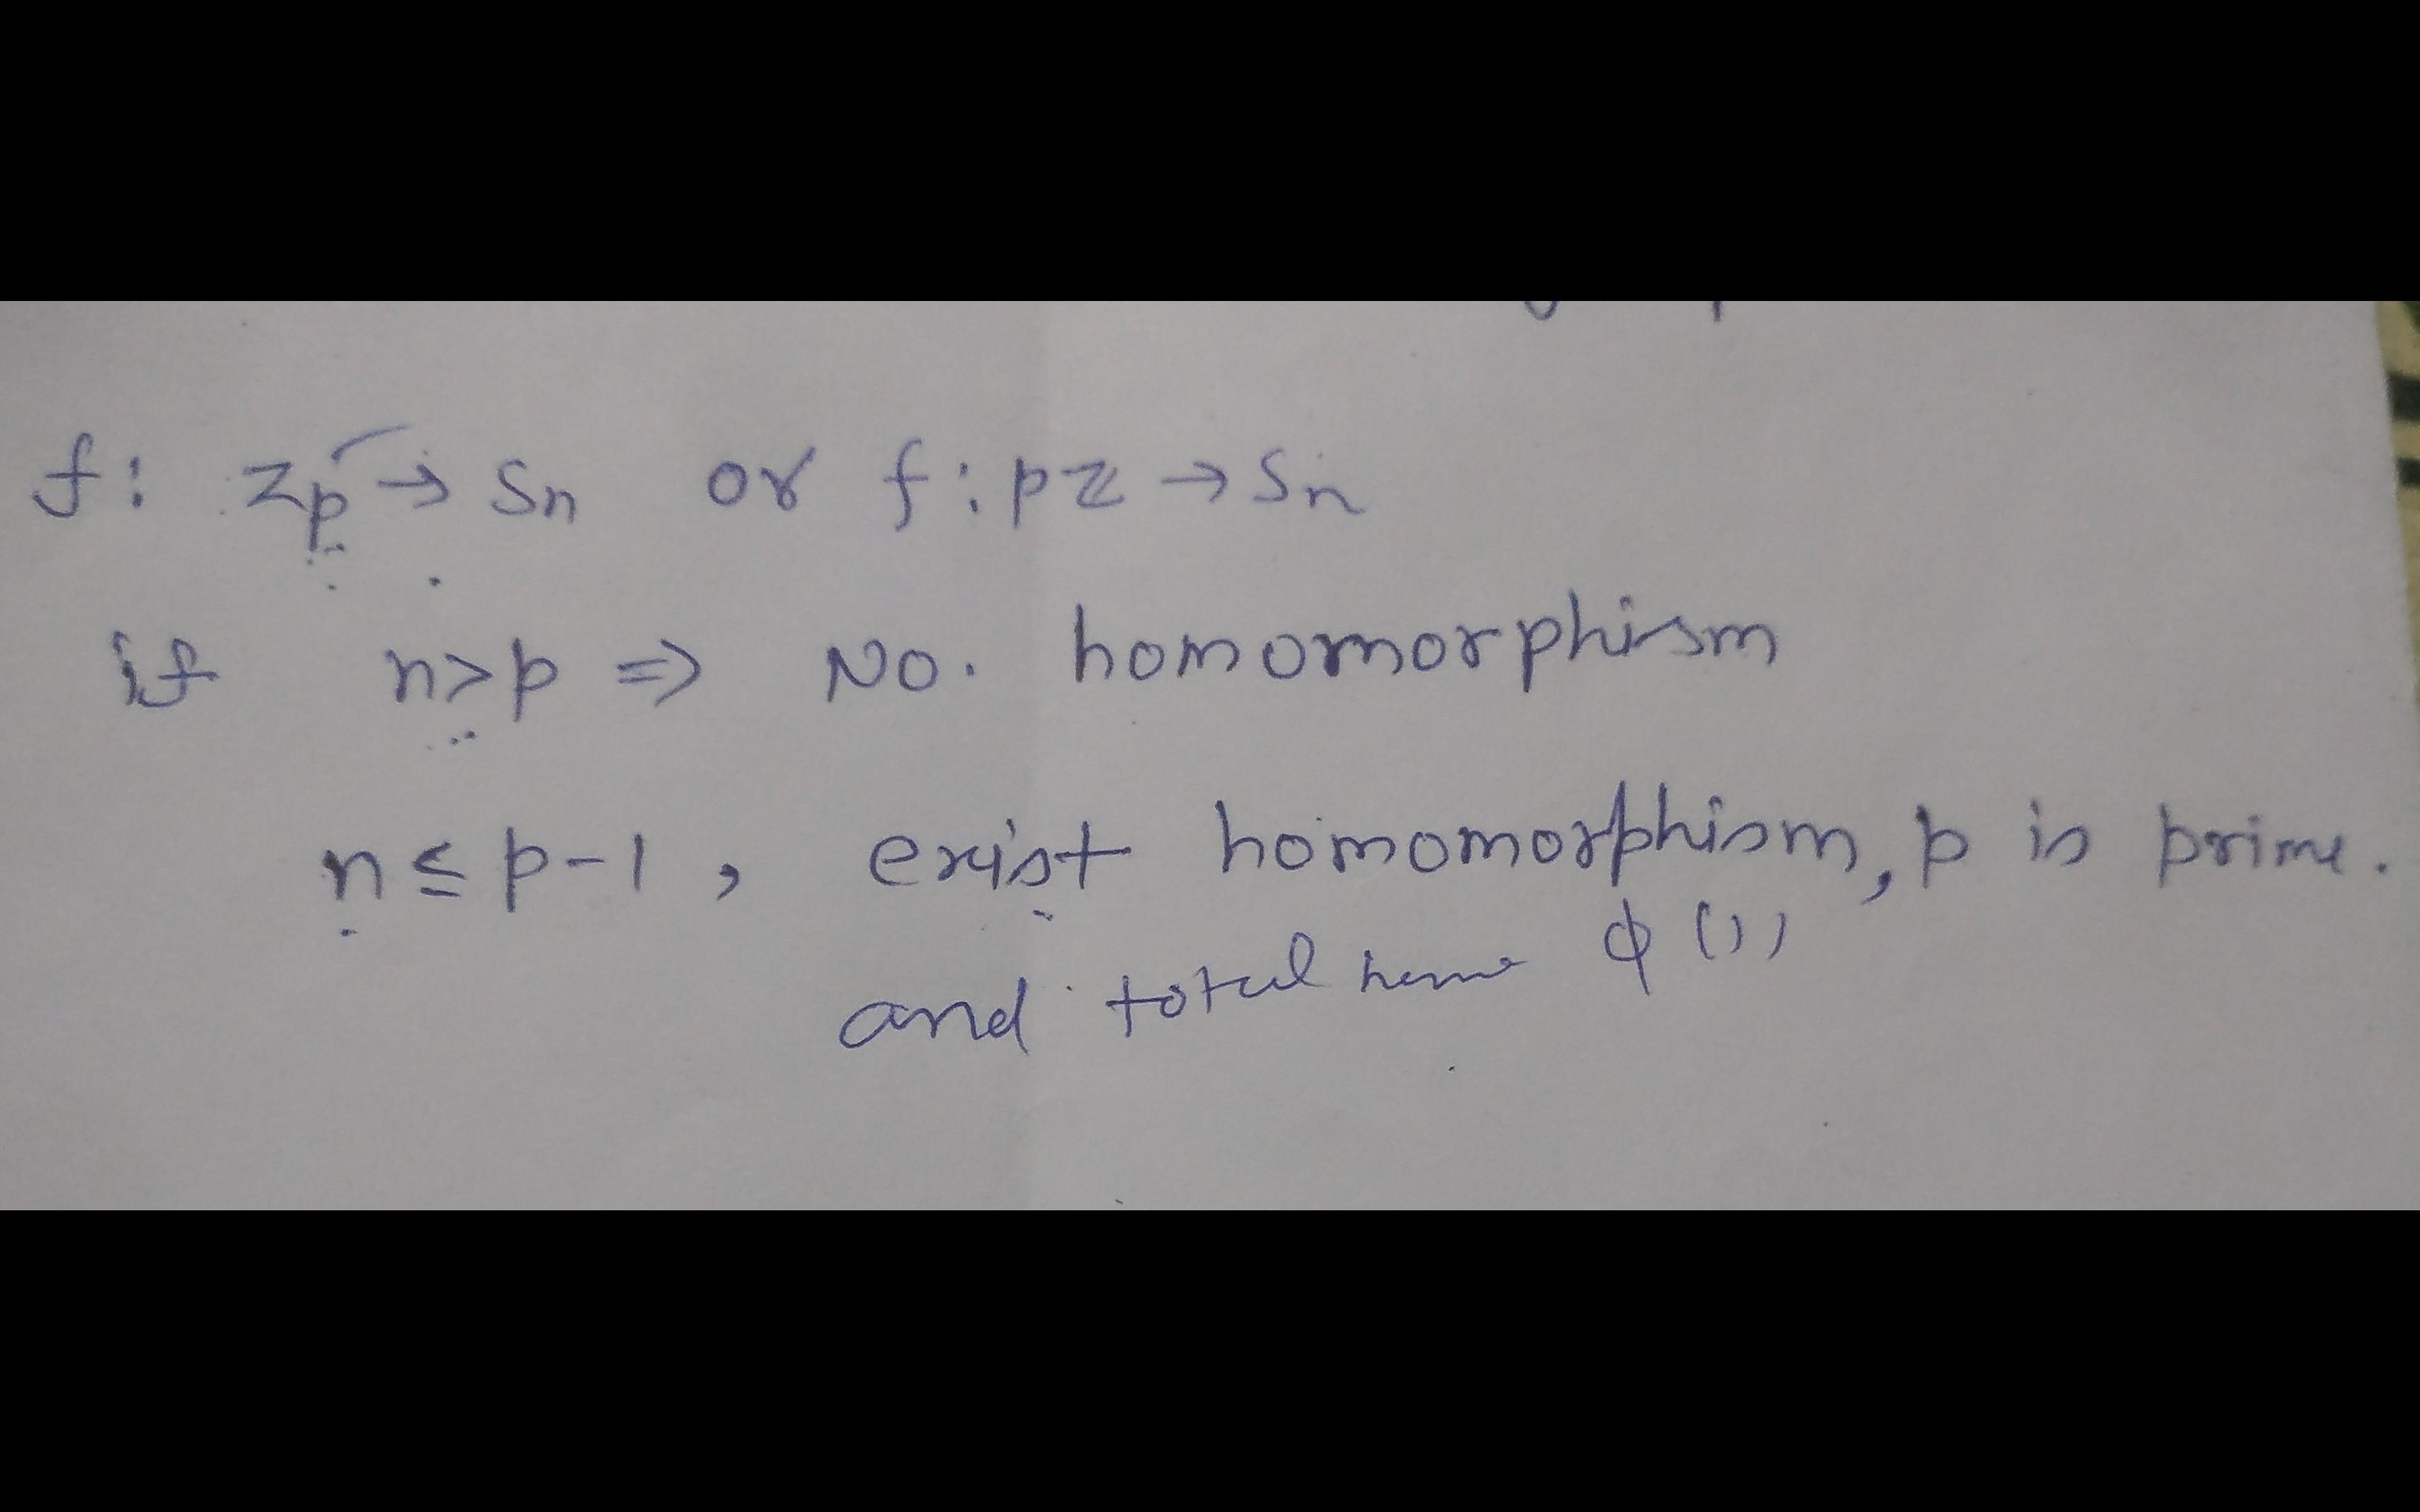 f: Zp → Sn or f: pZ → Sn
if n>p ⇒ No. homomorphism
n ≤ p-1, exist homomorphism, p is prime.
and total homo φ(1)